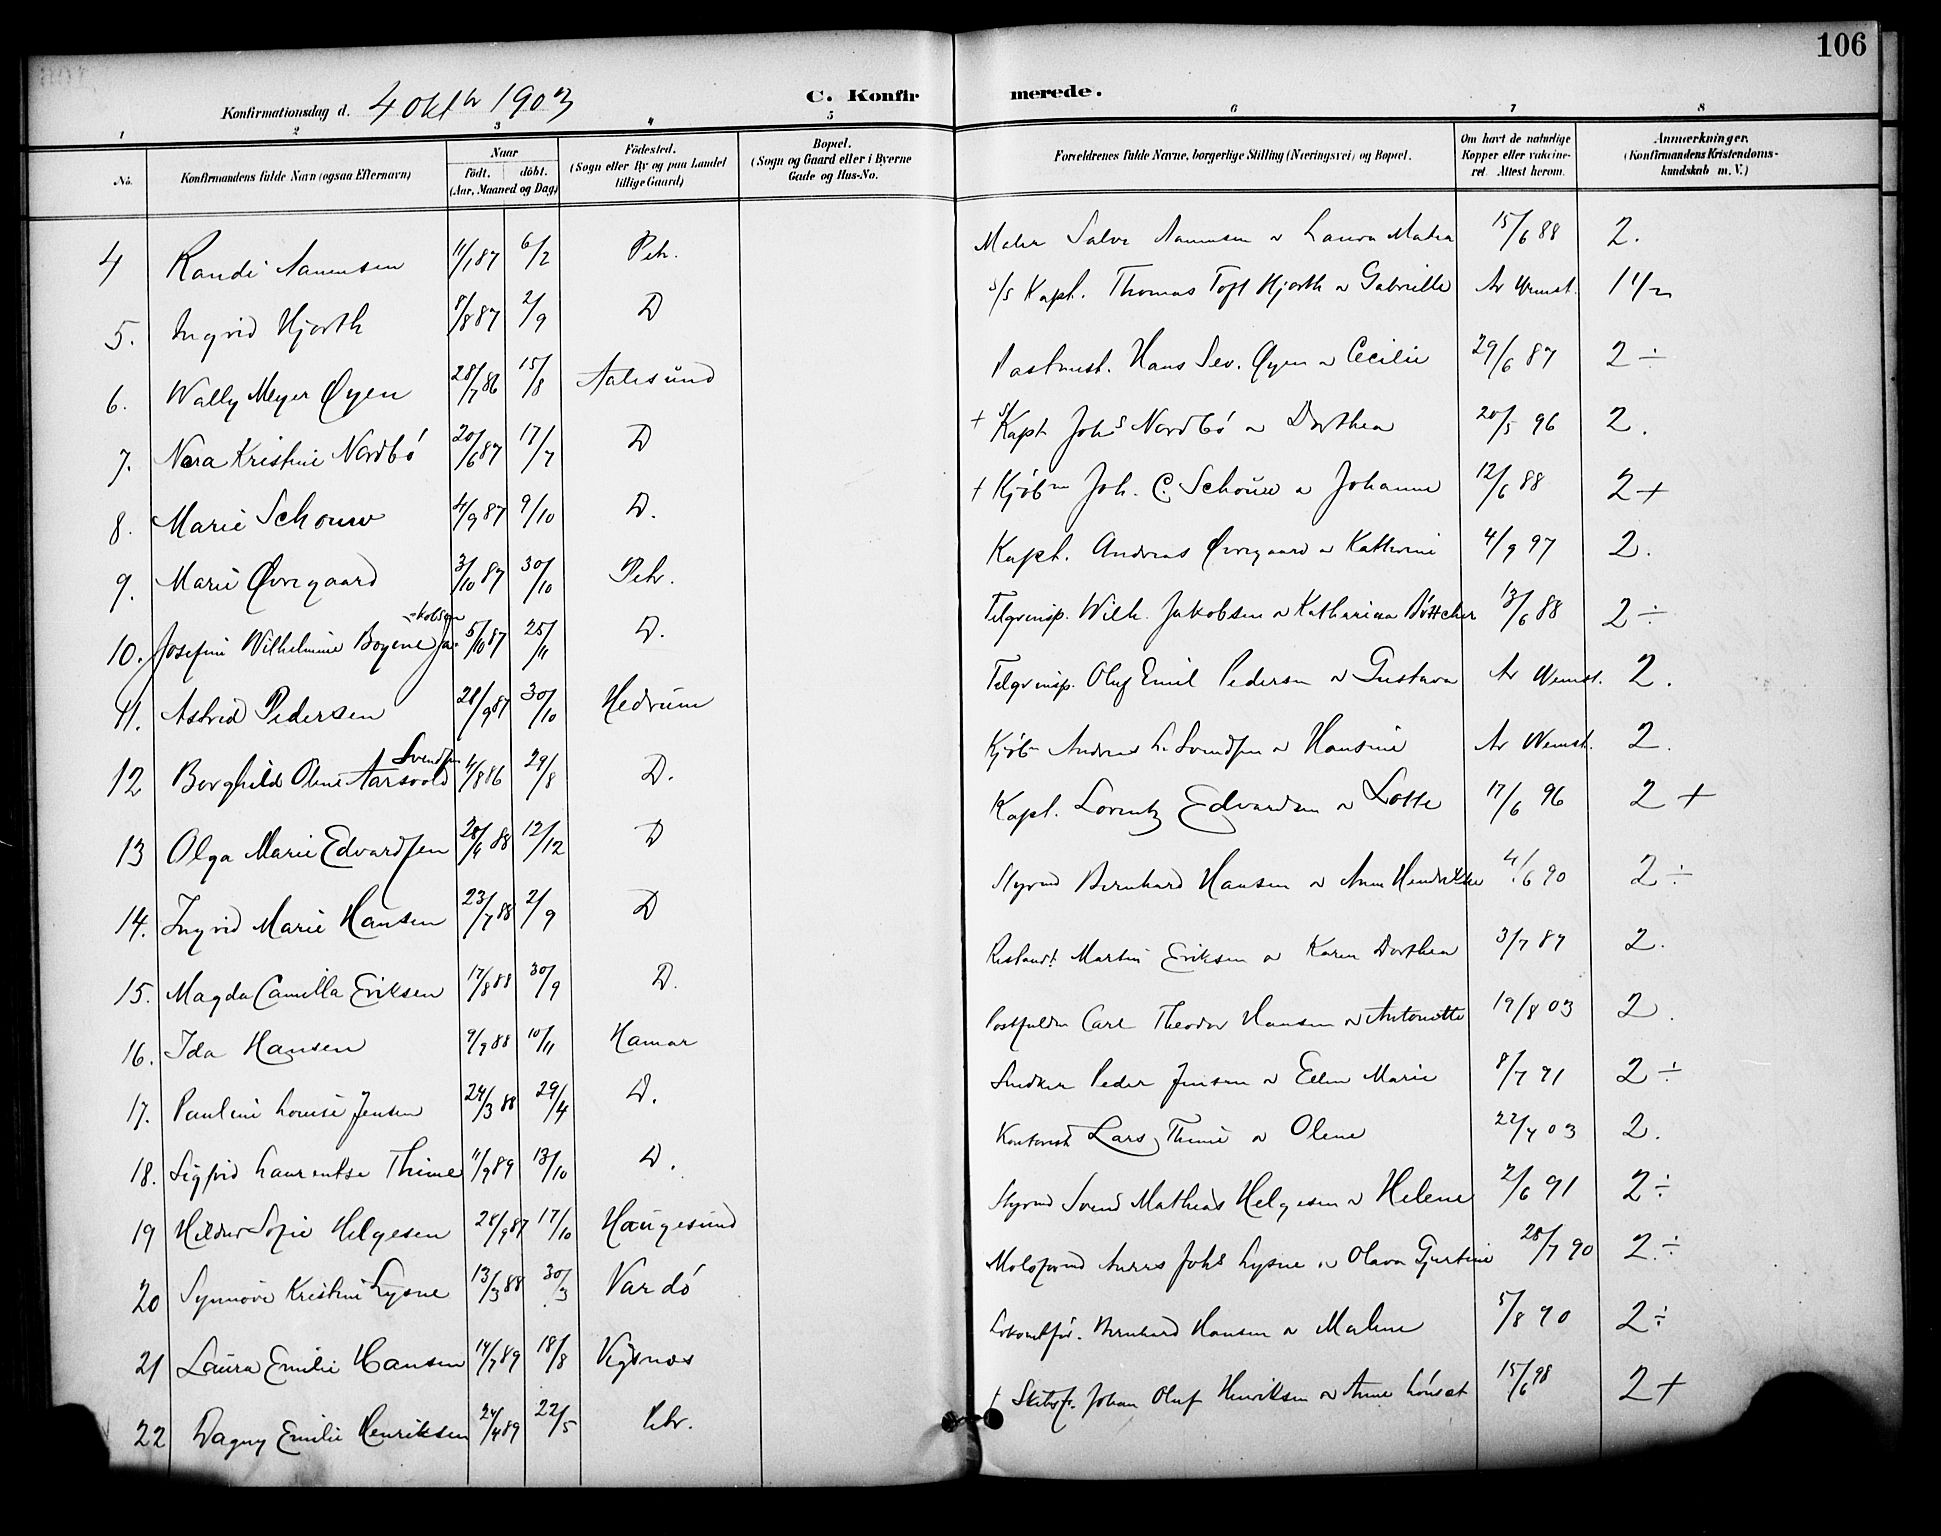 106
Konfirmationsdag d. 4 Okt 1903
C. Konfirmerede.
1 2 3 4 5 6 7 8
No.
Konfirmandens fulde Navn (ogsaa Efternavn)
Naar
födt. döbt.
(Aar, Maaned og Dag)
Födested.
(Sogn eller By og paa Landet
tillige Gaard)
Bopæl.
(Sogn og Gaard eller i Byerne
Gade og Hus-No.
Forældrenes fulde Navne, borgerlige Stilling (Næringsvei) og Bopæl.
Om havt de naturlige
Kopper eller vaccine-
ret. Attest herom.
Anmærkninger.
(Konfirmandens Kristendoms-
kundskab m. V.)
4 Randi Aanensen 11/1 87 6/2 Petr. Maler Salve Aanensen o Laura Malea 15/6 88 2.
5. Ingrid Hjorth 8/8 87 2/9 D s/s Kapt. Thomas Toft Hjorth o Gabrielle Av Wemst. 1 1/2
6. Wally Meyer Øyen 28/7 86 15/8 Aalesund Hans Sev. Øyen o Cecilie 29/6 87 2 ÷
7. Nora Kristine Nordbó 20/6 87 17/7 D + s/Kapt Johs Nordbó o Dorthea 20/5 96 2.
8. Marie Schouw 4/9 87 9/10 D. + Kjöbm Joh. C. Schouw o Johanne 12/6 88 2 +
9. Marie Øvregaard 3/10 87 30/10 Petr. Kapt. Andreas Øvregaard o Kathrine 4/9 97 2.
10. Josefine Wilhelmine Boyene Ja-kobsen 5/10 87 25/11 D. Telgrinsp. Wilh. Jakobsen o Katharina Böttcher 13/6 88 2 ÷
11. Astrid Pedersen 28/9 87 30/10 Hedrum Telgrinsp. Oluf Emil Pedersen o Gustava Av Wemst. 2.
12 Borghild Oline Aarsvold Svendsen 4/8 86 29/8 D. Kjöbm Andreas L. Svendsen o Hansine Av Wemst. 2.
13 Olga Marie Edvardsen 28/4 88 12/12 D Kapt. Lorentz Edvardsen o Lotte 17/6 96 2 +
14. Ingrid Marie Hansen 23/7 88 2/9 D Styrmd Bernhard Hansen o Anne Hendrikke 4/6 90 2 ÷
15. Magda Camilla Eriksen 17/8 88 30/9 D. Restaurt Martin Eriksen o Karen Dorthea 3/7 89 2.
16. Ida Hansen 9/9 88 10/11 Hamar Postfuldm Carl Theodor Hansen o Antonette 19/8 03 2.
17. Pauline Louise Jensen 24/3 88 29/4 D. Snedker Peder Jensen o Ellen Marie 8/7 91 2 ÷
18. Sigfrid Laurentse Thime 11/9 89 13/10 D. Kontorist Lars Thime o Olene 22/7 03 2.
19 Hildur Sofie Helgesen 28/9 87 17/10 Haugesund Styrmd Svend Mathias Helgesen o Helene 2/6 91 2 ÷
20 Synnöve Kristine Lysne 13/3 88 30/3 Vardó Johs Lysne o Olava Gjertine 28/7 90 2 ÷
21 Laura Emilie Hansen 14/7 89 18/8 Vigsnæs Lokomotför. Bernhard Hansen o Malene 5/8 90 2 ÷
22 Dagny Emilie Henriksen 24/4 89 22/5 Petr. + Skibsf. Johan Oluf Henriksen o Anne 15/6 98 2 +